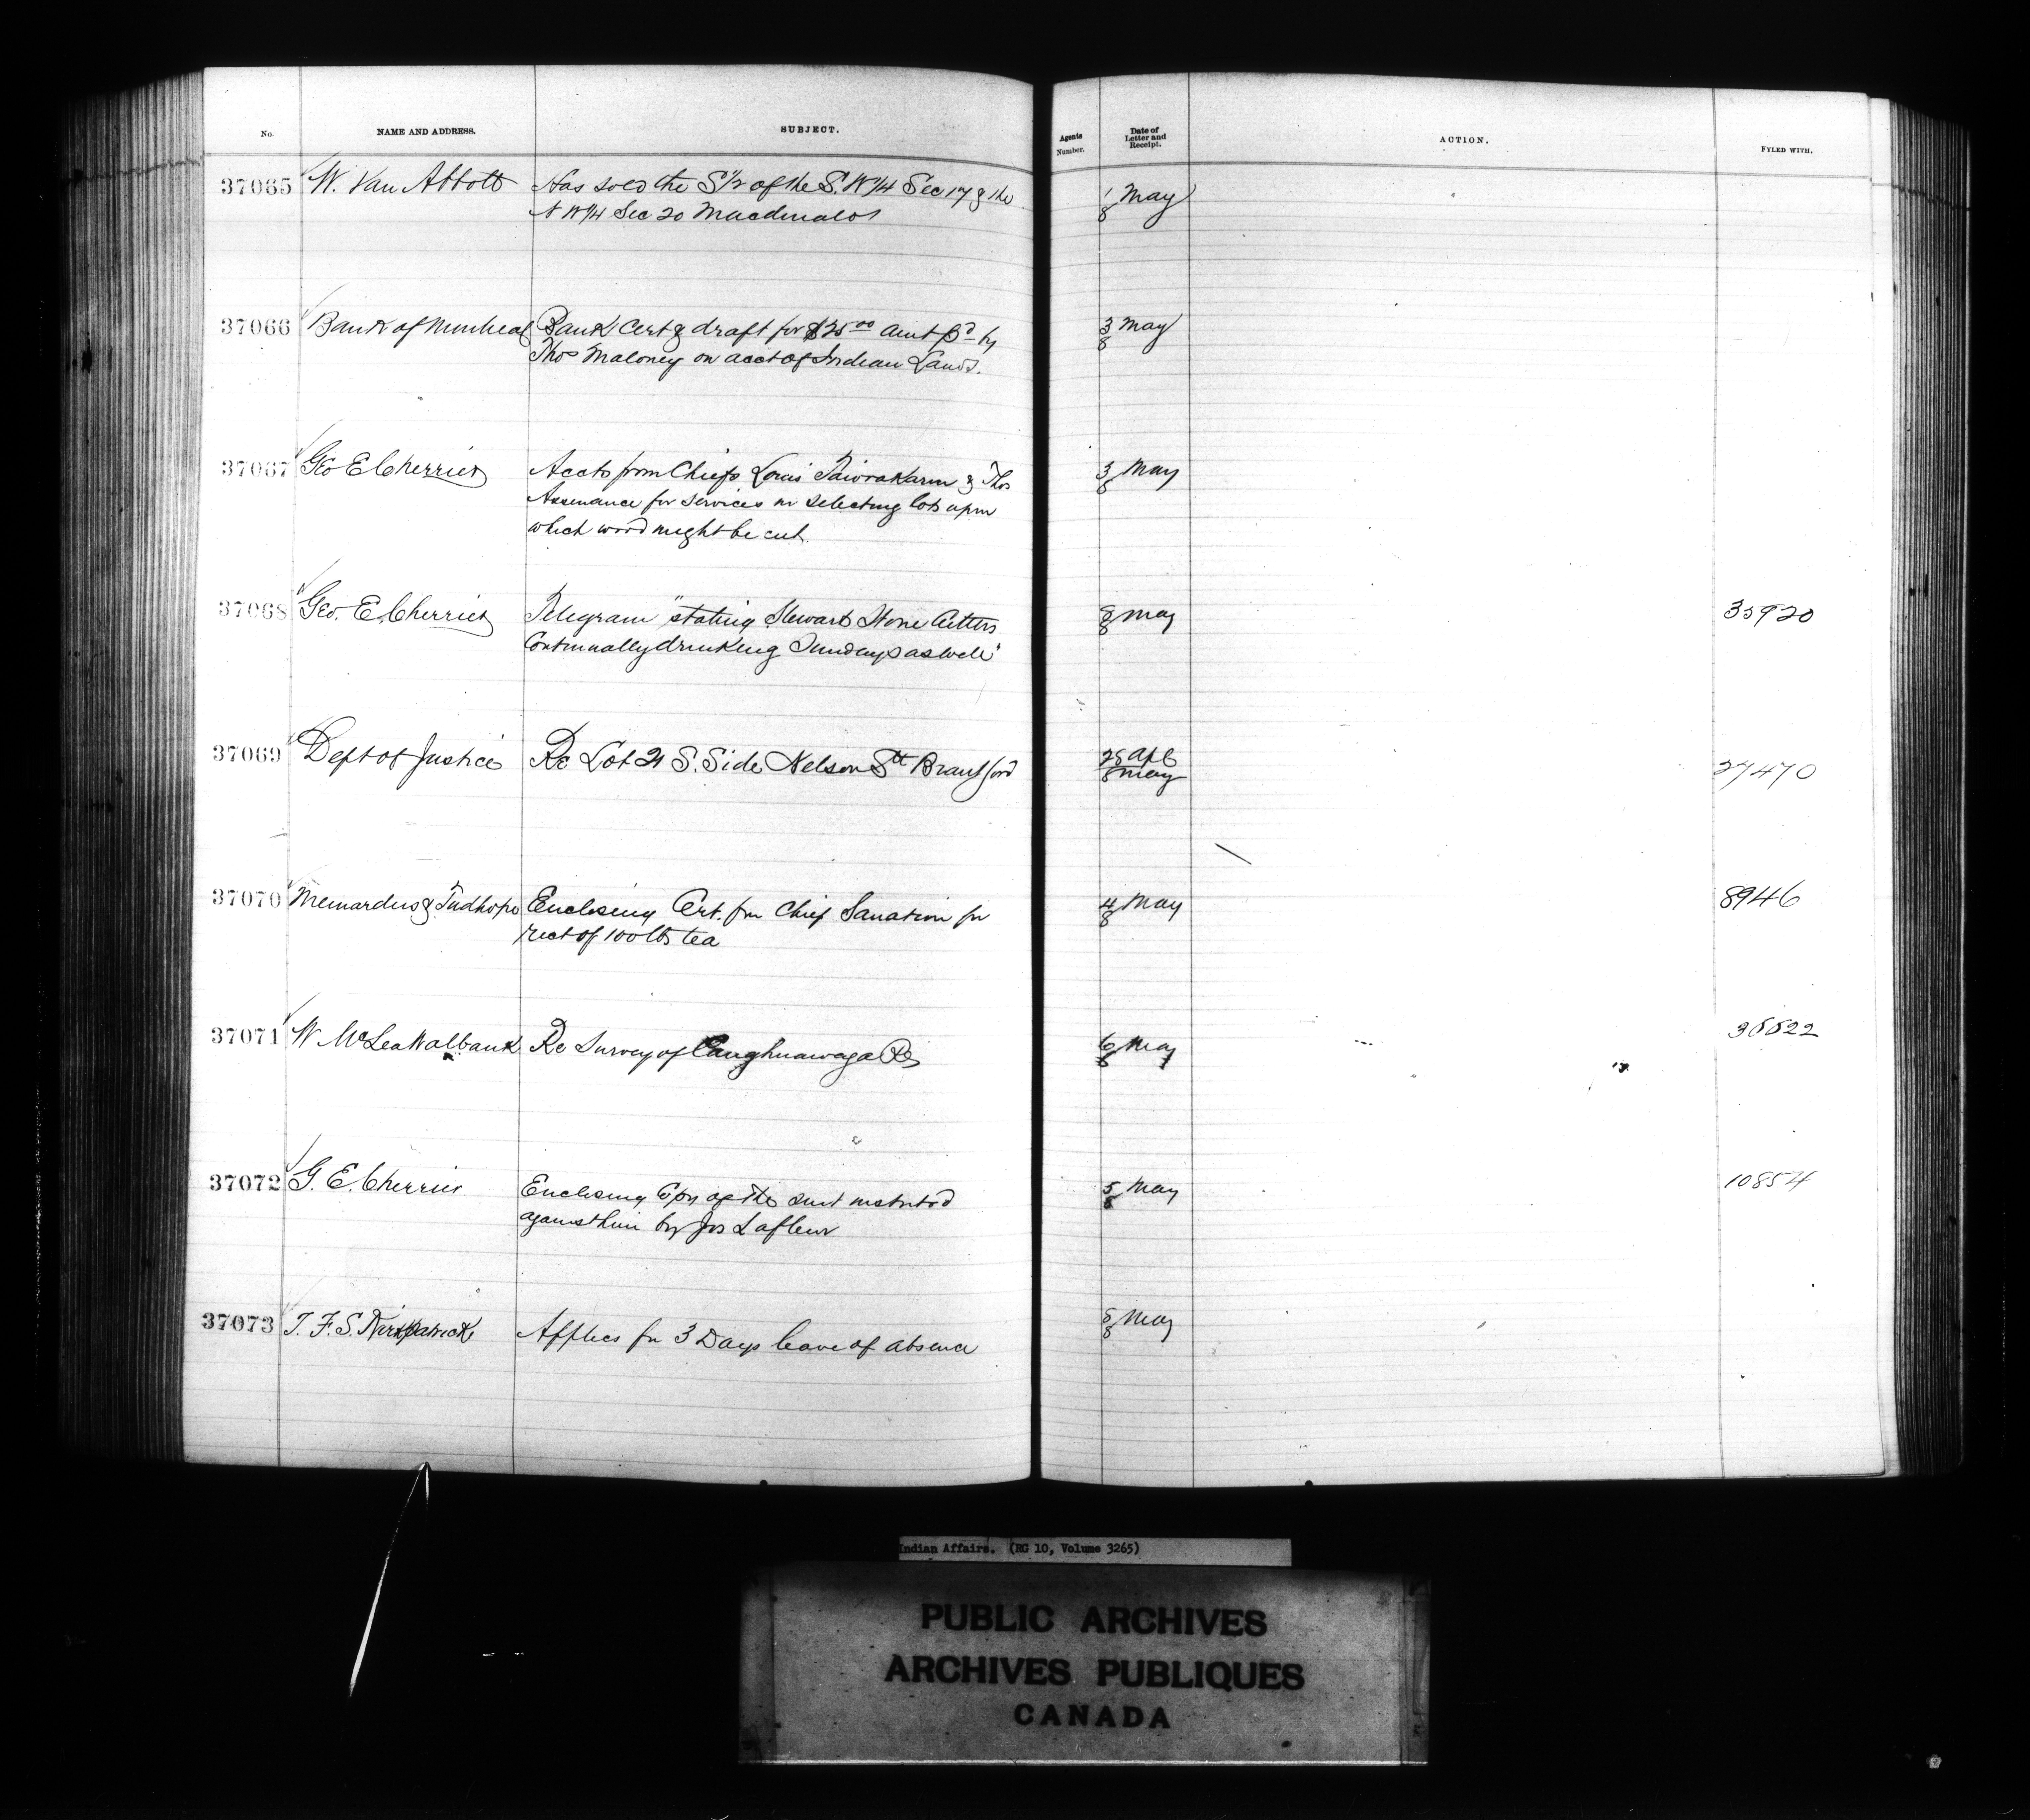 No. NAME AND ADDRESS. SUBJECT. Agents Number. Date of Letter and Receipt. ACTION. FYLED WITH.
37065 W. Van Abbott Has sold the S 1/2 of the S. W 1/4 Sec 17 & the 1 May
N W 1/4 Sec 20 Macdonald 8
37066 Bank of Montreal Bank Cert & draft for $25 00 amt pd by 3 May
Thos Maloney on acct of Indian Lands. 8
37067 Geo E Cherrier Accts from Chiefs Louis & Thos 3 May
for services in selecting lots upon 8
which wood might be cut.
37068 Geo. E. Cherrier Telegram "stating Stewart Stone Cutters 8 May 35920
Continually drinking Sundays as well" 8
37069 Dept of Justice Re Lot 21 S. Side Nelson St Brantford 28 Apl 27470
8 May
37070 & Tudhope Enclosing Cert. from Chief for 4 May 8946
rect of 100 lbs tea 8
37071 W McLea Walbank Re Survey of Caughnawaga Res 6 May 36622
8
37072 G. E. Cherrier Enclosing Copy of the suit instituted 5 May 10854
against him by Jos Lafleur 8
37073 T. F. S. Kirkpatrick Applies for 3 Days leave of absence 8 May
8
Indian Affairs. (RG 10, Volume 3265)
PUBLIC ARCHIVES
ARCHIVES PUBLIQUES
CANADA